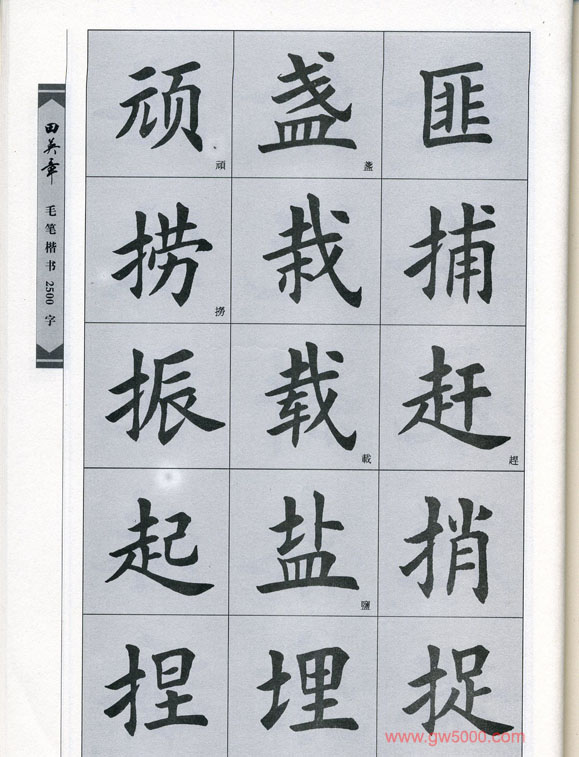 田英章 毛笔楷书2500字
顽 盏 匪
頑 盞
捞 栽 捕
撈
振 载 赶
載 趕
起 盐 捎
鹽
捏 埋 捉
www.gw5000.com